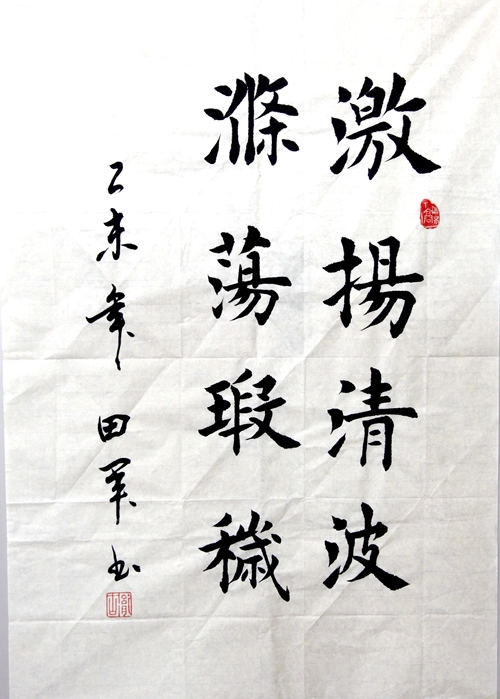 激揚清波
滌蕩瑕穢
乙未年 田军书